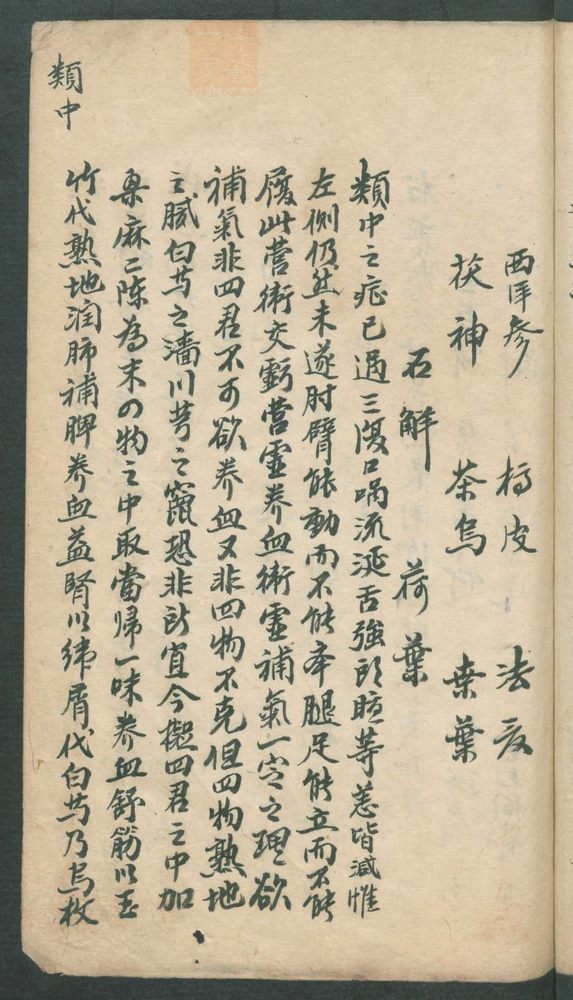 西洋參 橘皮 法夏
茯神 茶烏 桑葉
石斛 荷葉
類中之症已過三復口喎流涎舌強頭暄等恙皆減惟
左側仍然未遂肘臂能動而不能牽腿足能立而不能
履此營衛交虧營虛養血衛虛補氣一定之理欲
補氣非四君不可欲養血又非四物不克但四物熟地
之膩白芍之濇川芎之竄恐非所宜今擬四君之中加
桑麻二陳為末四物之中取當歸一味養血舒筋以玉
竹代熟地潤肺補脾養血益腎以綿屑代白芍乃烏枚
類中